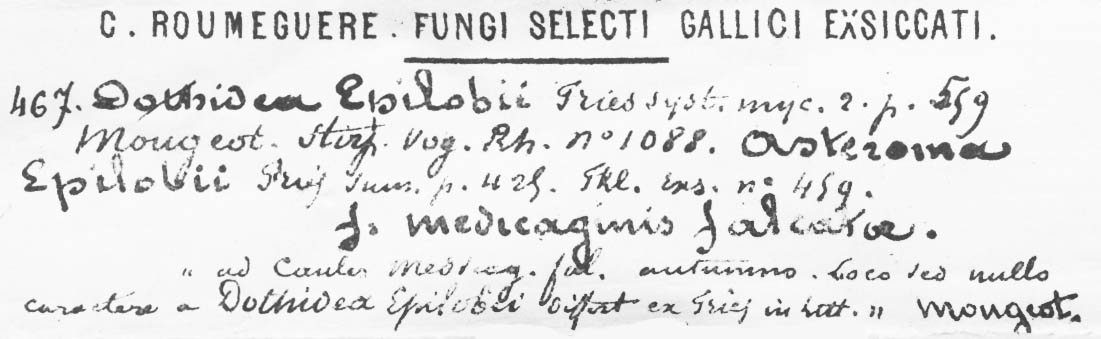 C. ROUMEGUERE. FUNGI SELECTI GALLICI EXSICCATI.
467. Dothidea Epilobii Fries syst. myc. 2. p. 559
Mougeot. Stirp. Vog. Rh. nº 1088. Asteroma
Epilobii Fries Sum. p. 425. Fkl. Exs. nº 459.
f. Medicaginis falcatae.
" ad Caules Medicag. fal. autumno. Loco sed nullo
caractere a Dothidea Epilobii differt ex Fries in litt. " Mougeot.